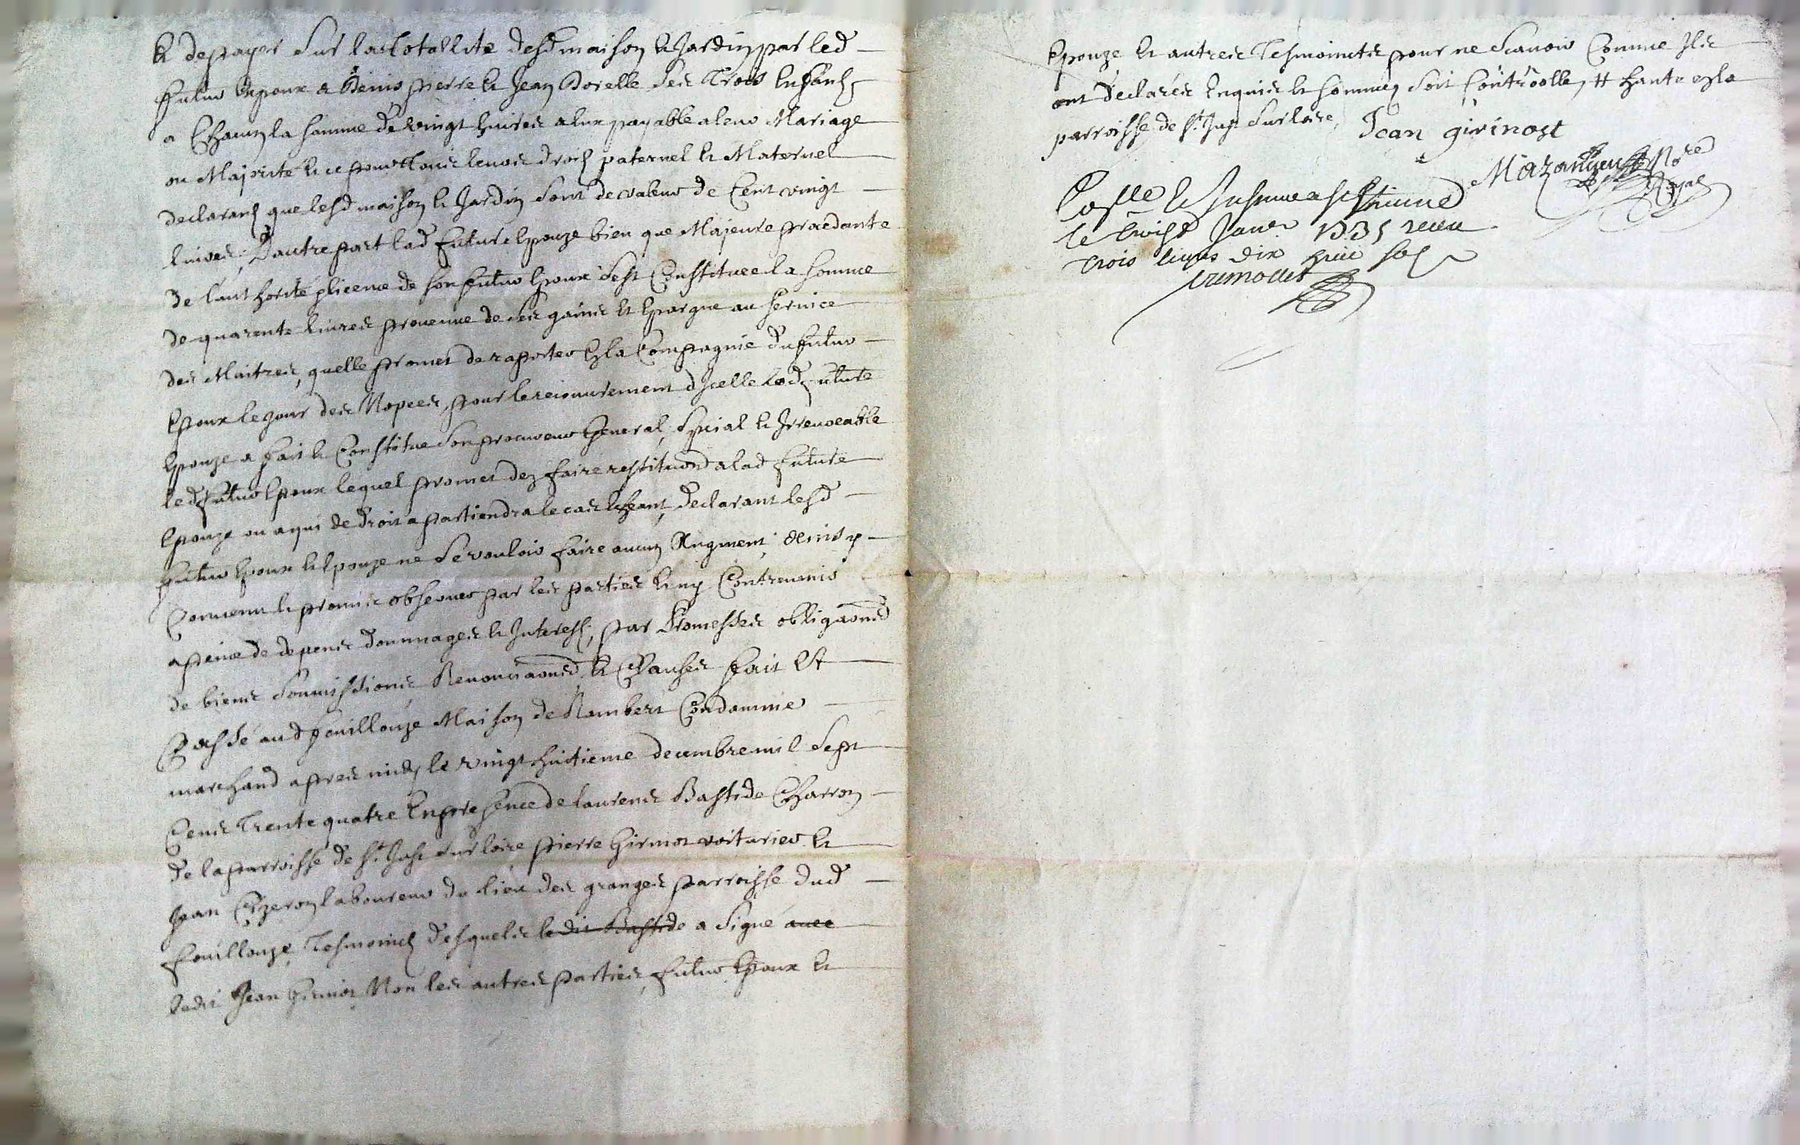 Et de payer sur la totallité desd maison et Jardin par led
futur Epoux a Denis pierre et Jean Dorelle ses trois Enfants
a Chacun la somme de vingt livres a eux payable a leur Mariage
ou Majorité et ce pour tous leurs droits paternel et Maternel
declarant que lesd maison et Jardin sont de valeur de Cent vingt
livres, D'autre part lad future Epouze bien que Majeure procedante
de l'authorité et licence de son futur Epoux s'est Constituée la somme
de quarente livres provenue de ses gains et Epargne au service
des Maitres, quelle promet de raporter En la Compagnie du futur
Epoux le jour des Nopces, pour le recouvrement d'Icelle lad future
Epouze a fait et Constitue son procureur General, Special et Irrevocable
led futur Epoux lequel promet d'en faire restitution a lad future
Epouze ou a qui de droit apartiendra le cas Echeant, declarant lesd
futur Epoux et Epouze ne se vouloir faire aucun Augment, ainsy
Convenu et promis observer par les parties et ny Contrevenir
a peine de depens dommages et Interests, par Promesses obligaons
de biens soumissions Renonciaons et Clauses fait Et
Passé aud fouillouze Maison de Rambert Condamine
marchand apres midy le vingt huitieme decembre mil sept
Cens trente quatre En presence de laurens Bastide Charron
de la parroisse de St Just sur loire pierre Girinot voiturier et
Jean Chzeron laboureur du lieu des granges parroisse dud
fouillouze, Tesmoins desquels ledit Bastide a signé avec
ledit Jean Girinot Non les autres parties, futur Epoux et
Epouze et autres Tesmoints pour ne scavoir Comme Ils
ont declarés Enquis et sommés soit Contrôollé, # hante en la
parroisse de St Just sur loire,
Jean girinost
Mazanieu Nore
Royal
Collé et Insinué a St Etienne
le trois Janer 1735 receu
trois livres dix huit sols